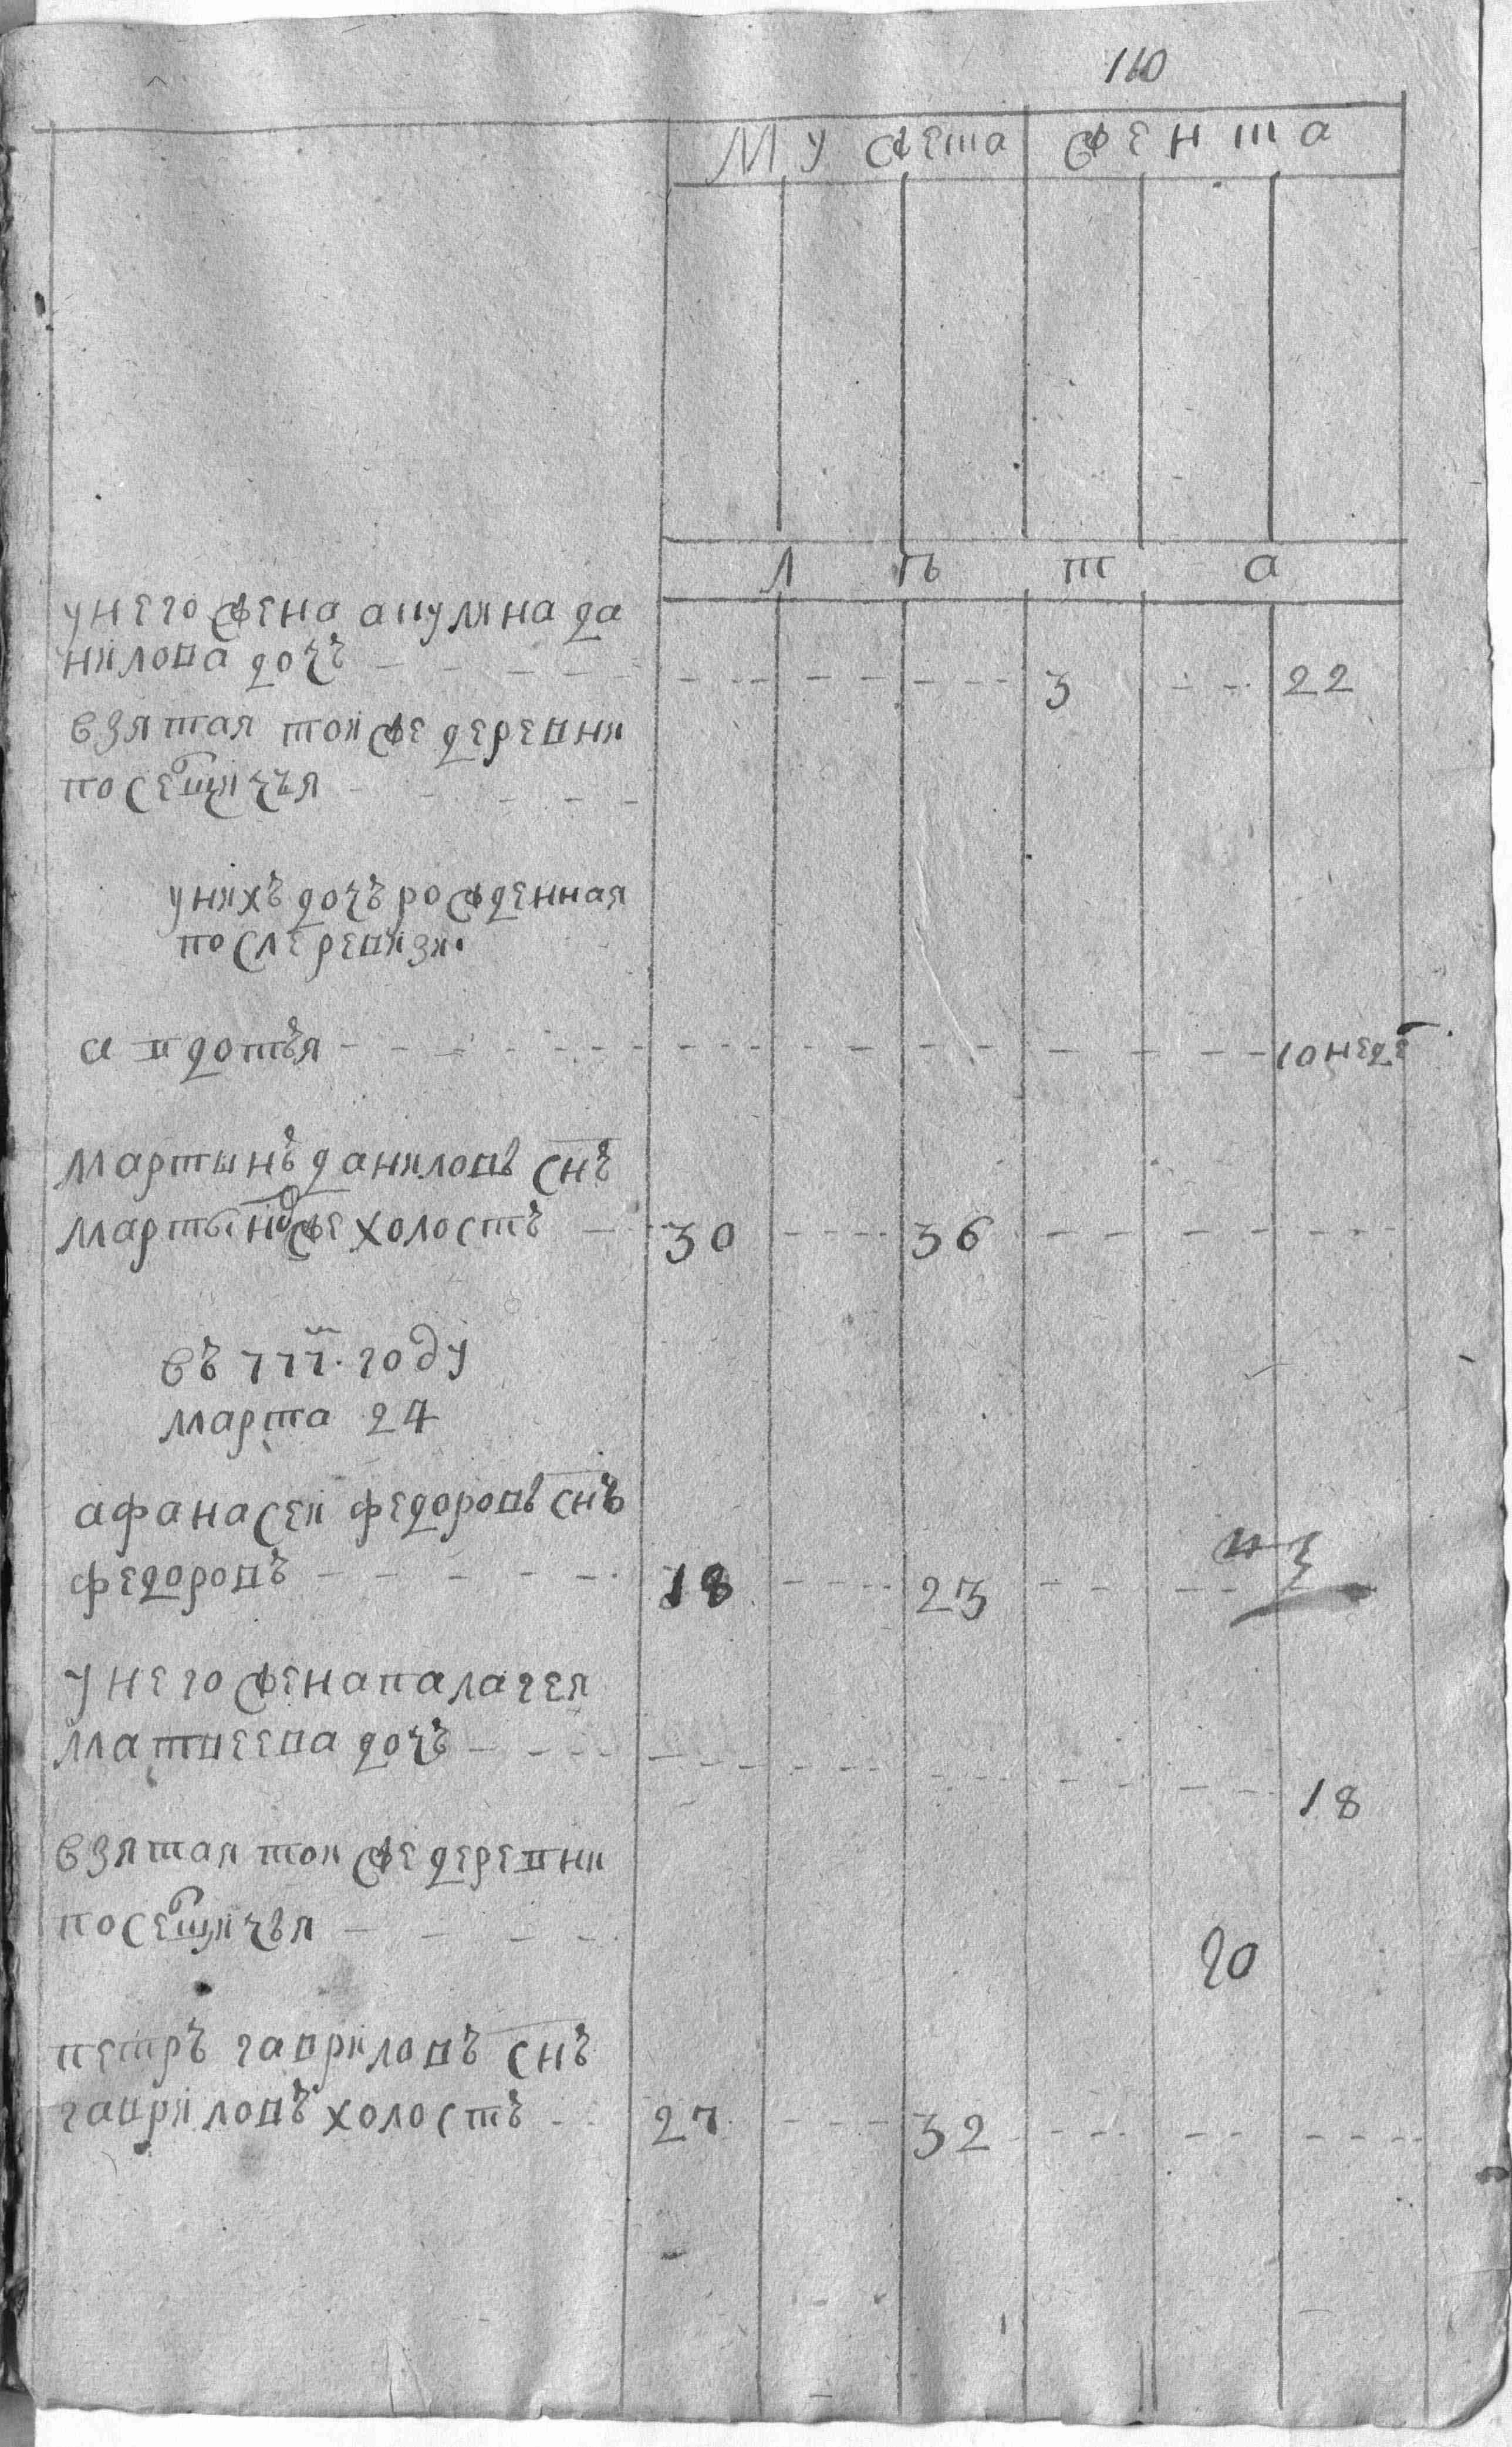 110
МУЖЕСКА ЖЕНСКА
Л Ѣ Т А
унего жена акулина да
нилова дочъ 3 22
взятая тойже деревни
посемичъя
унихъ дочъ рожденная
послеревизи
авдотъя 10 неде
мартынъ даниловъ снъ
мартыновже холостъ 30 36
въ 777. году
марта 24
афанасеи федоровъ снъ
федоровъ 18 23
унего жена палагея
матвеева дочъ 18
взятая тойже деревни
20
петръ гавриловъ снъ
гавриловъ холостъ 27 32